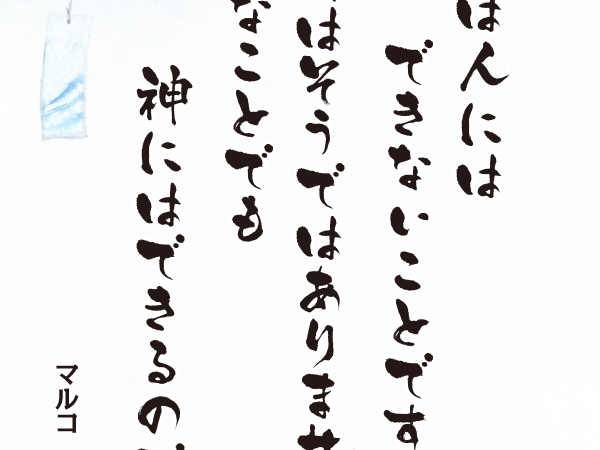 は人には
できないことです
はそうではありませ
なことでも
神にはできるの
マルコ